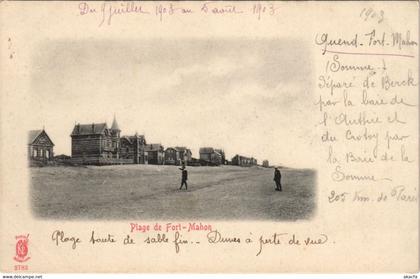 Du 9 juillet 1903 au 2 août 1903
1903
Quend-Fort-Mahon
(Somme)
séparé de Berck
par la baie de
l'Authie et
du Crotoy par
la Baie de la
Somme —
205 km. de Paris
Plage de Fort-Mahon
3783
Plage haute de sable fin... Dunes à perte de vue.
www.akpool.com